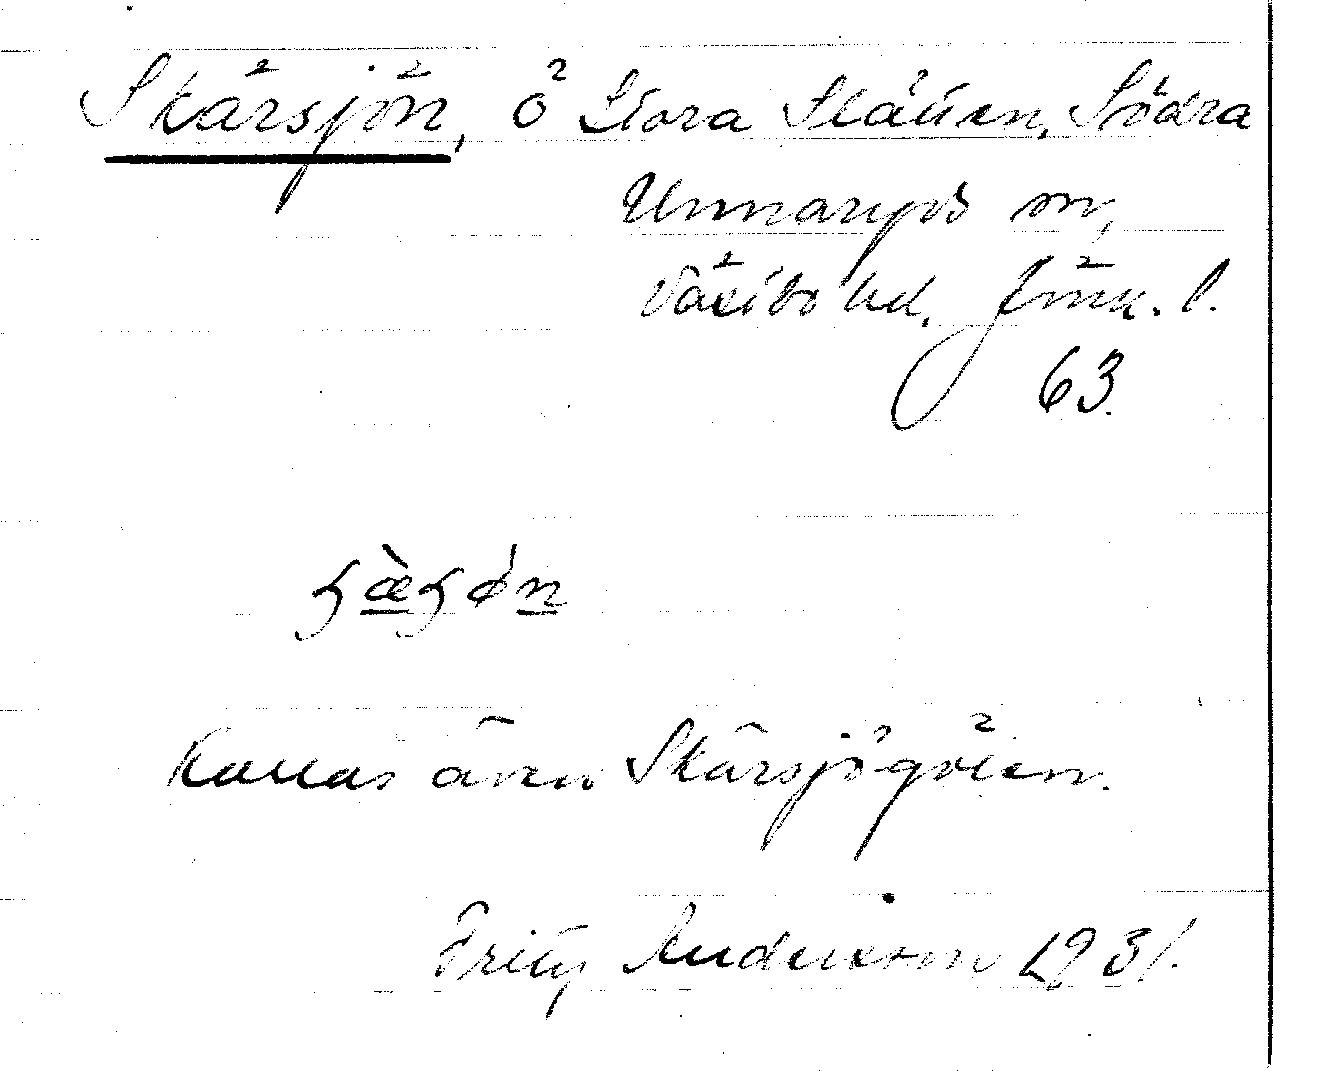 Skärsjön, Ö Stora Slätten, Södra
Unnaryds sn,
Västbo hd, Jönk. l.
63.
Kallas även Skärsjögölen.
Fritz Andersson 1931.